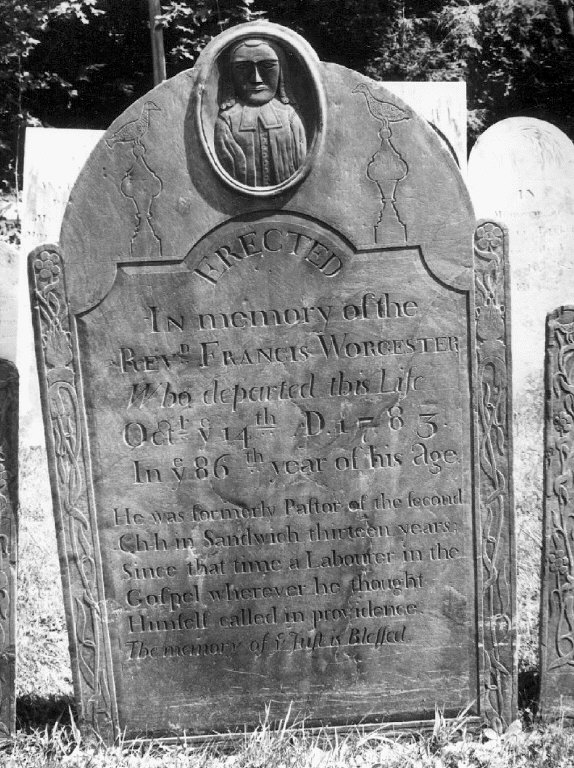 ERECTED
In memory of the
REVᴰ FRANCIS WORCESTER
Who departed this Life
Octʳ yᵉ 14ᵗʰ A.D. 1783.
In yᵉ 86ᵗʰ year of his Age.
He was formerly Paſtor of the ſecond
Chh in Sandwich thirteen years;
Since that time a Labourer in the
Goſpel wherever he thought
Himſelf called in providence.
The memory of yᵉ Juſt is Bleſſed.